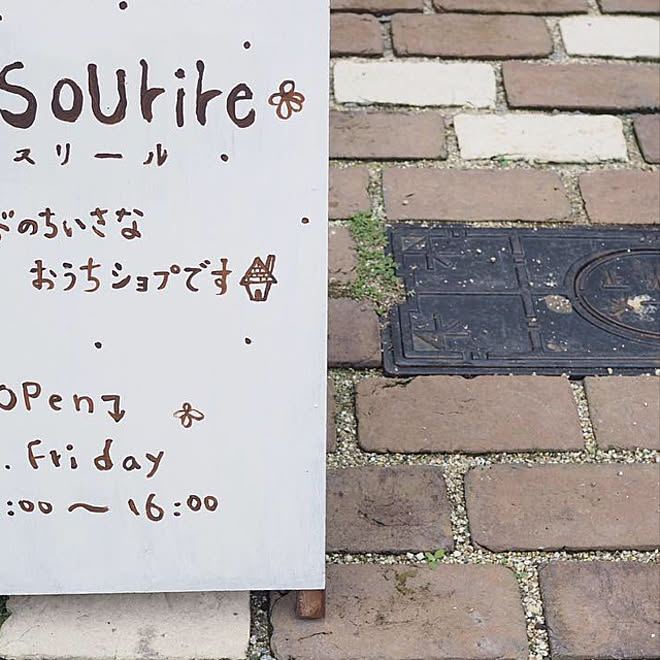 Sourire
スリール
のちいさな
おうちショップです
OPen
. Friday
:00 〜 16:00